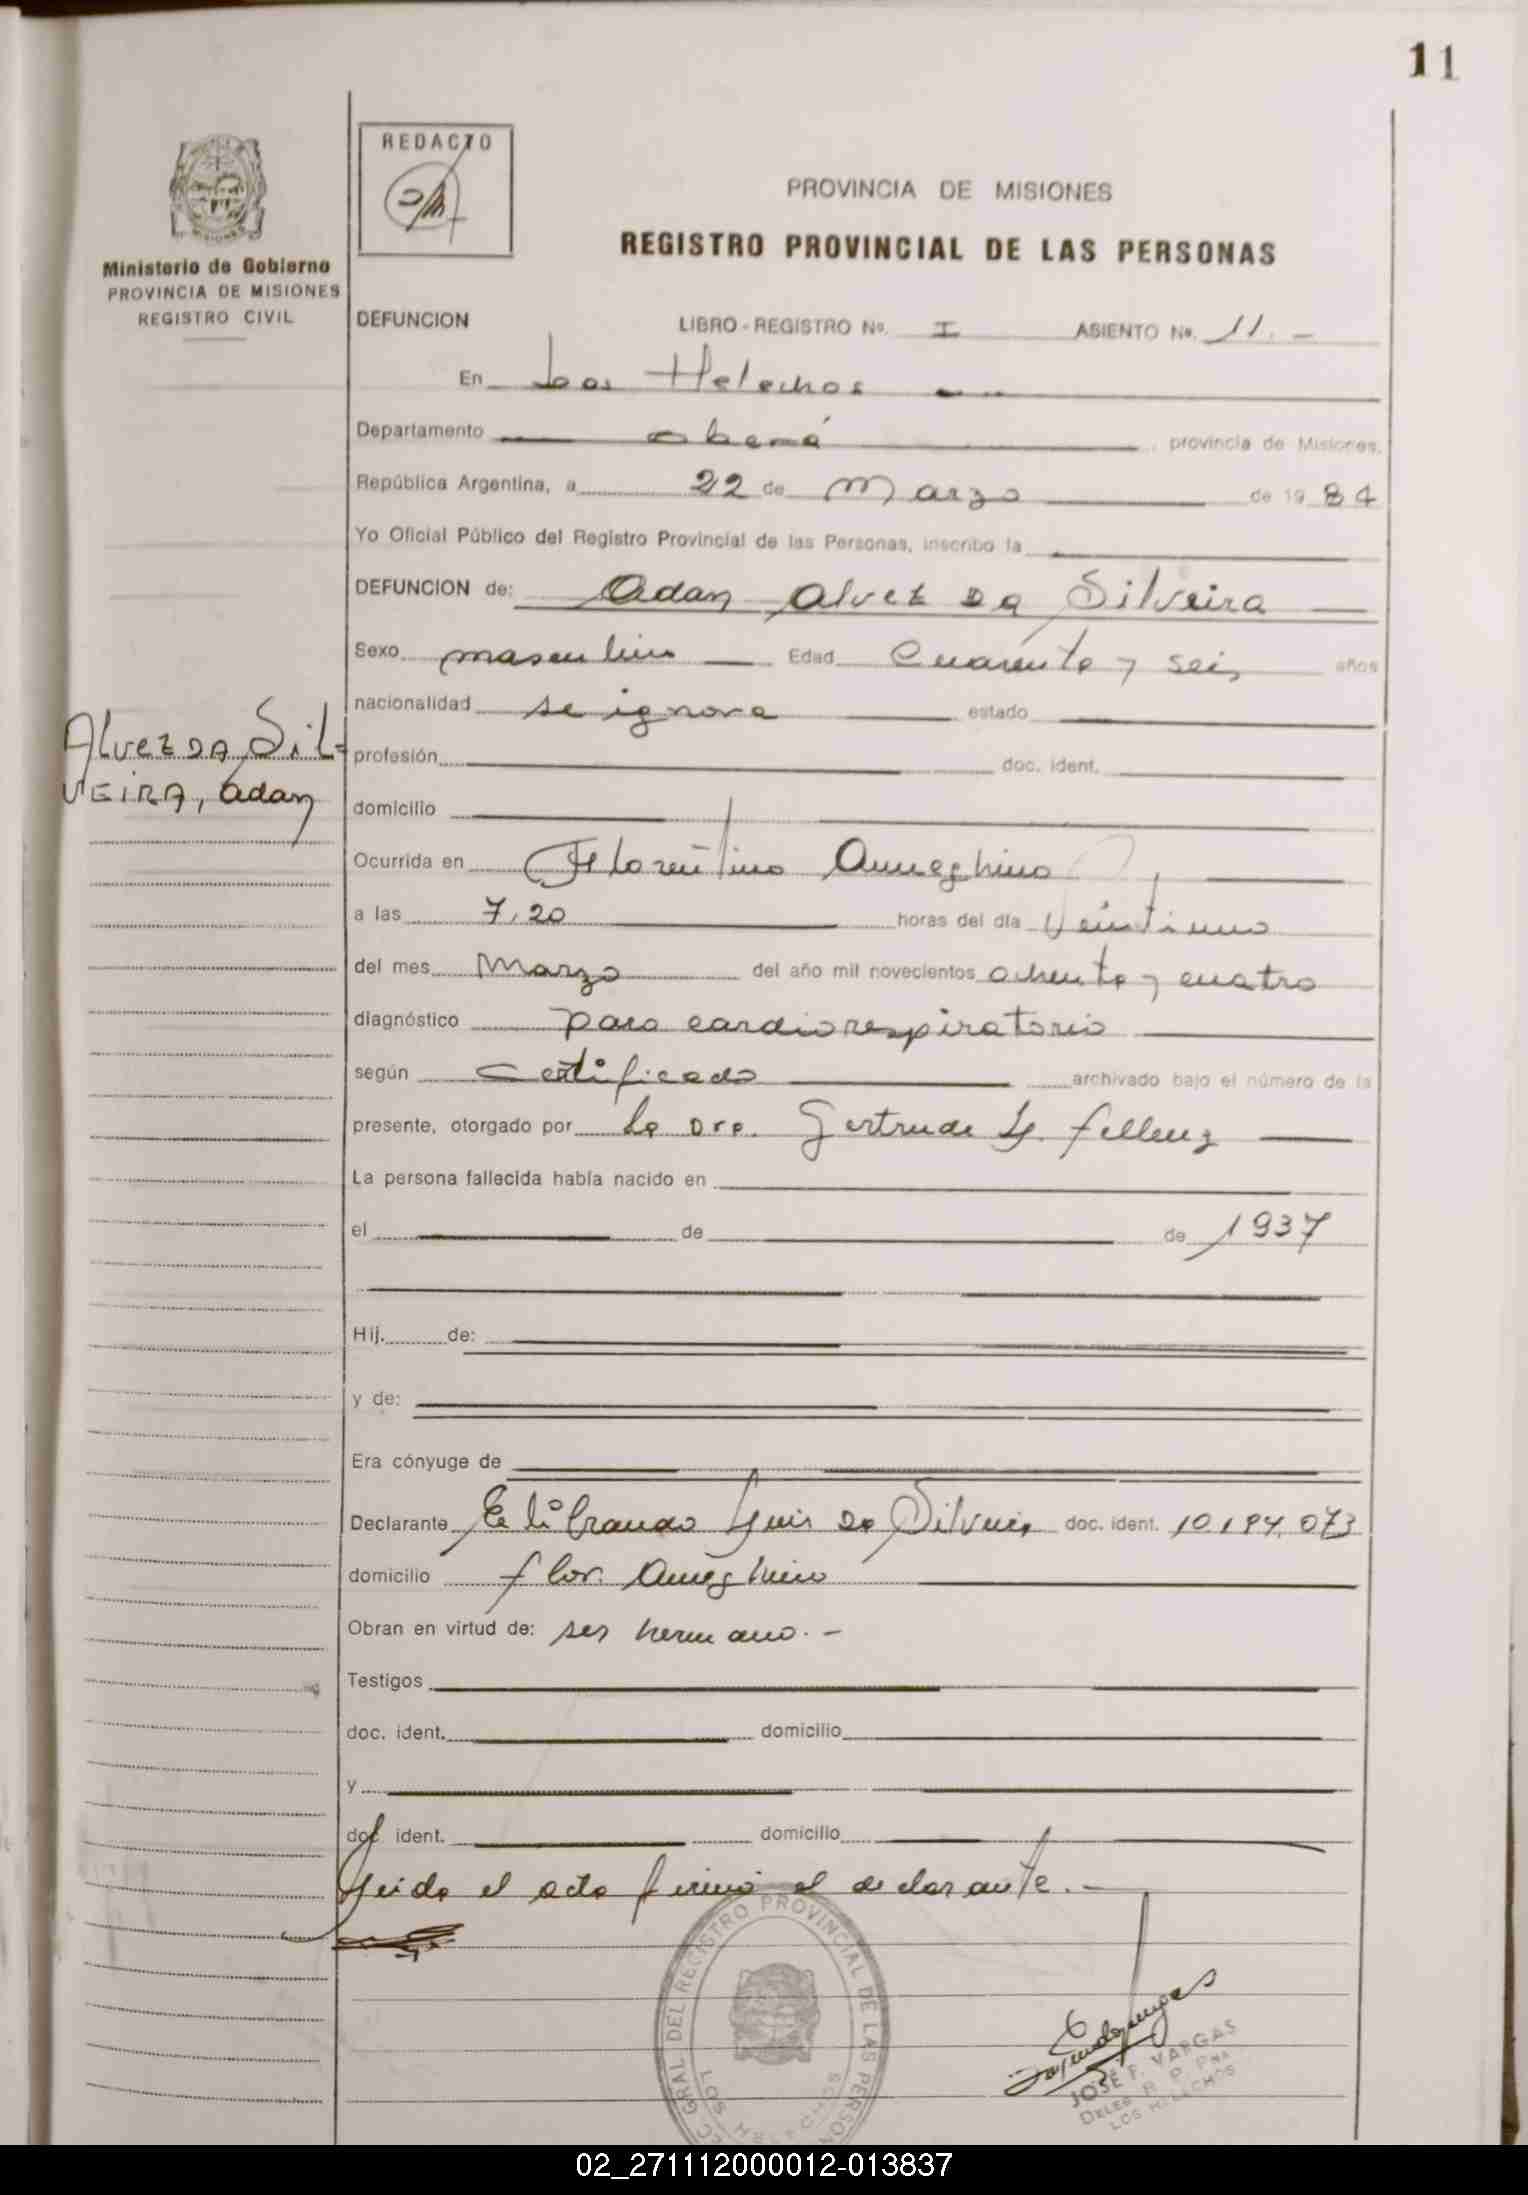 11
REDACTO
PROVINCIA DE MISIONES
REGISTRO PROVINCIAL DE LAS PERSONAS
Ministerio de Gobierno
PROVINCIA DE MISIONES
REGISTRO CIVIL
DEFUNCION LIBRO - REGISTRO Nº. I ASIENTO Nº. 11.-
En Los Helechos
Departamento oberá, provincia de Misiones.
República Argentina, a 22 de Marzo de 1984
Yo Oficial Público del Registro Provincial de las Personas, inscribo la
DEFUNCION de: Adan Alvez Da Silveira
Sexo masculino Edad Cuarenta y seis años
nacionalidad se ignora estado
Alvez DA SIL=
VEIRA, Adan
profesión doc. ident.
domicilio
Ocurrida en Florentino Ameghino
a las 7,20 horas del día Veintiuno
del mes Marzo del año mil novecientos ochenta y cuatro
diagnóstico paro cardiorespiratorio
según Certificado archivado bajo el número de la
presente, otorgado por la Dra. Gertrude L. Fellenz
La persona fallecida había nacido en
el de de 1937
Hij. de:
y de:
Era cónyuge de
Declarante Luis Da Silveira doc. ident. 10.194.073
domicilio flor. Ameghino
Obran en virtud de: ser hermano.-
Testigos
doc. ident. domicilio
y
doc. ident. domicilio
Leida el acta firma el declarante.-
GRAL DEL REGISTRO PROVINCIAL DE LAS PERSON
LOS HELECHOS
JOSÉ F. VARGAS
LOS HELECHOS
02_271112000012-013837